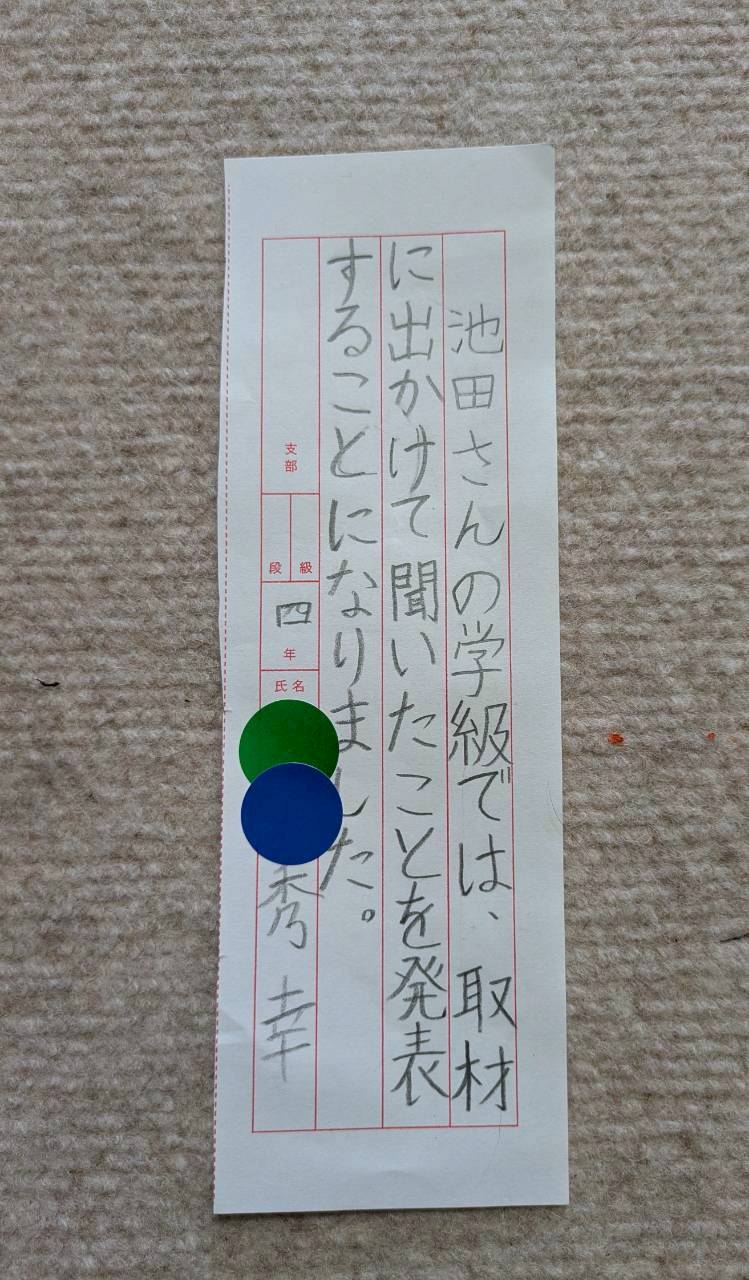 池田さんの学級では、取材
に出かけて聞いたことを発表
することになりました。
支部
段 級
四年
氏名
秀幸